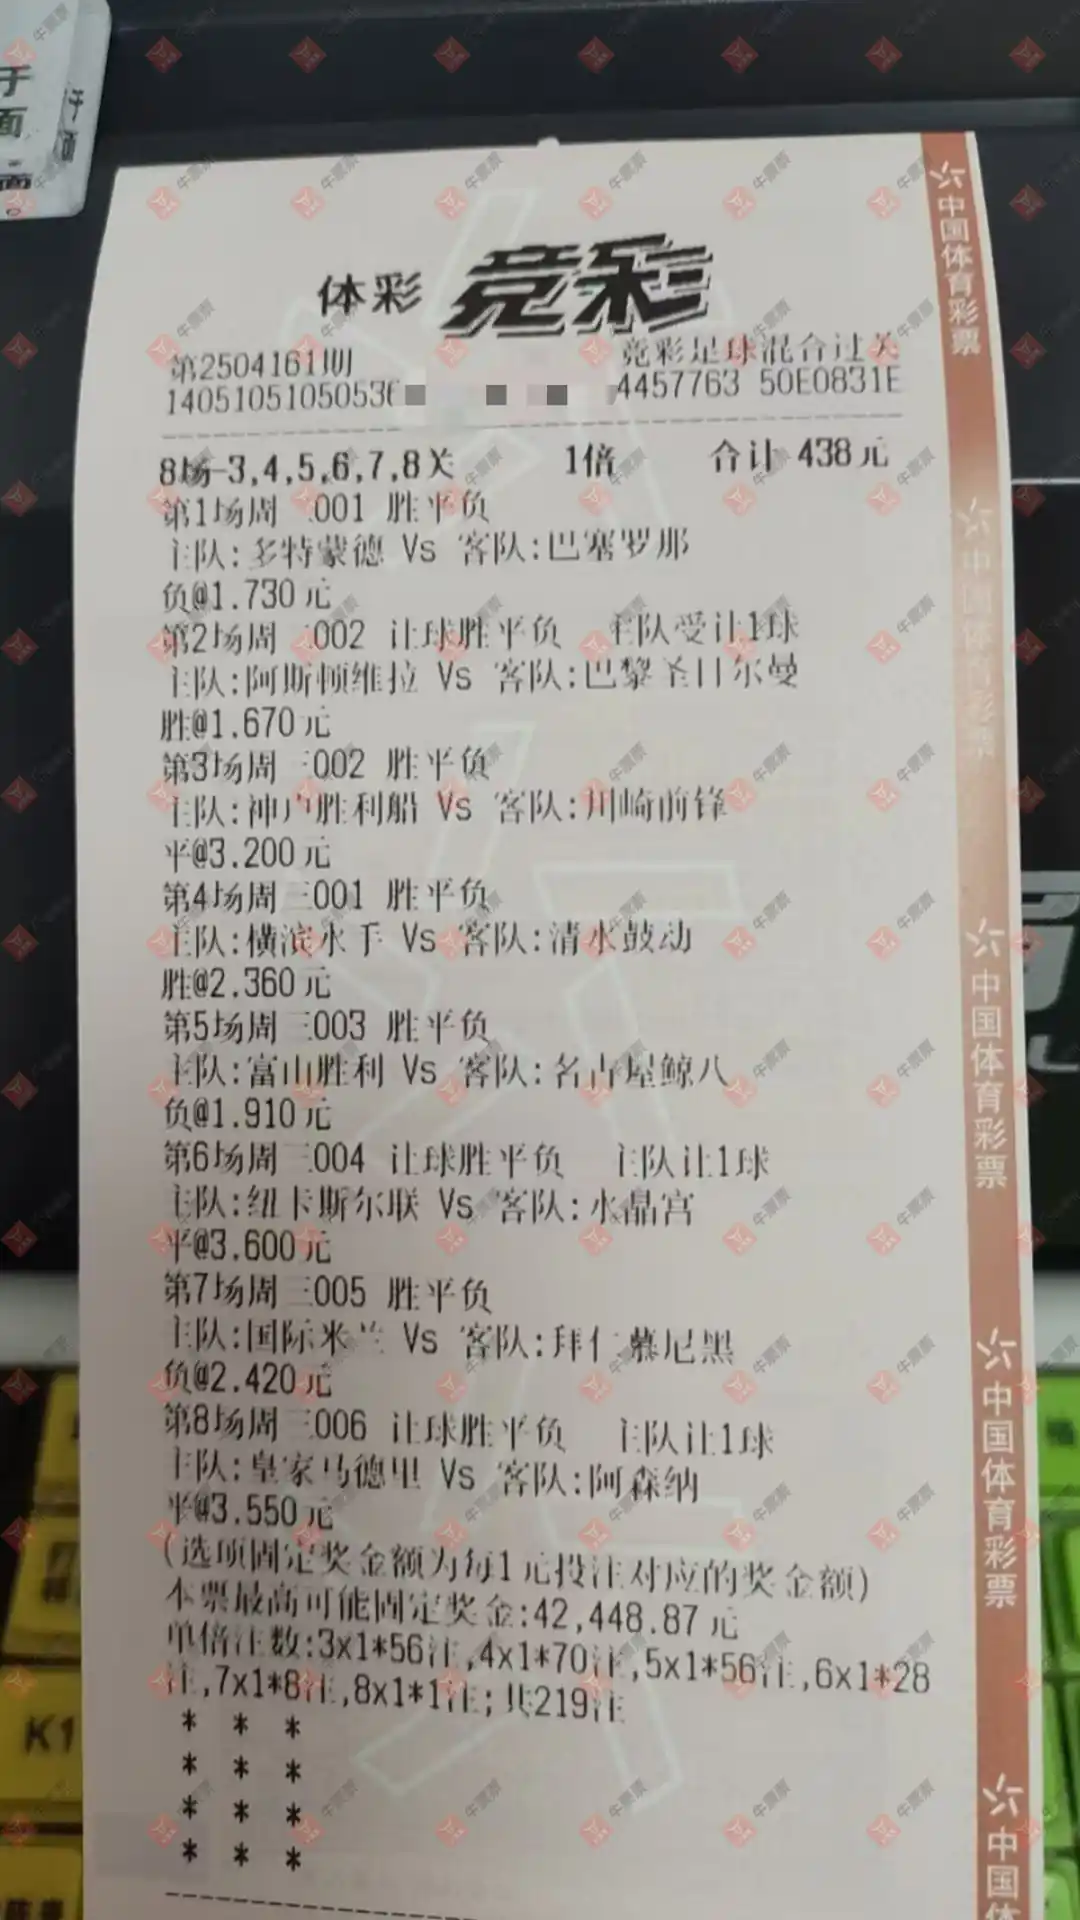 体彩 竞彩
第2504161期 竞彩足球混合过关
1405105105053 4457763 50E0831E
8场-3,4,5,6,7,8关 1倍 合计 438元
第1场周二001 胜平负
主队:多特蒙德 Vs 客队:巴塞罗那
负@1.730元
第2场周二002 让球胜平负 主队受让1球
主队:阿斯顿维拉 Vs 客队:巴黎圣日尔曼
胜@1.670元
第3场周三002 胜平负
主队:神户胜利船 Vs 客队:川崎前锋
平@3.200元
第4场周三001 胜平负
主队:横滨水手 Vs 客队:清水鼓动
胜@2.360元
第5场周三003 胜平负
主队:富山胜利 Vs 客队:名古屋鲸八
负@1.910元
第6场周三004 让球胜平负 主队让1球
主队:纽卡斯尔联 Vs 客队:水晶宫
平@3.600元
第7场周三005 胜平负
主队:国际米兰 Vs 客队:拜仁慕尼黑
负@2.420元
第8场周三006 让球胜平负 主队让1球
主队:皇家马德里 Vs 客队:阿森纳
平@3.550元
(选项固定奖金额为每1元投注对应的奖金额)
本票最高可能固定奖金:42,448.87元
单倍注数:3x1*56注,4x1*70注,5x1*56注,6x1*28
注,7x1*8注,8x1*1注;共219注
* * *
* * *
* * *
* * *
中国体育彩票
中国体育彩票
中国体育彩票
中国体育彩票
中国体
K1
牛票票